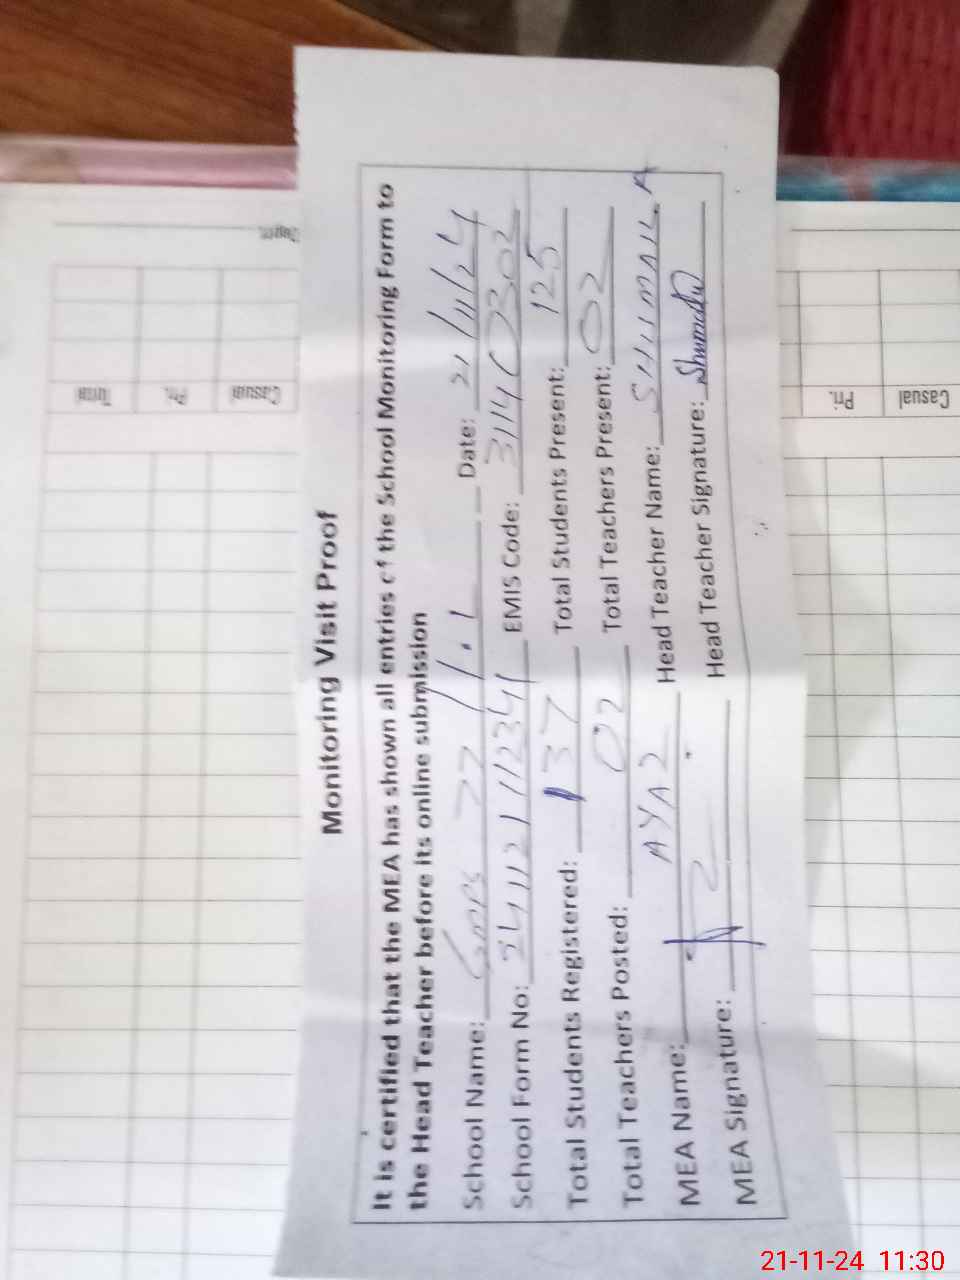 Monitoring Visit Proof
It is certified that the MEA has shown all entries of the School Monitoring Form to
the Head Teacher before its online submission
School Name: GMPS 77 Date: 21/11/24
School Form No: EMIS Code: 31140302
Total Students Registered: 137 Total Students Present: 125
Total Teachers Posted: 02 Total Teachers Present: 02
MEA Name: AYAZ Head Teacher Name: SHUMAILA
MEA Signature: Head Teacher Signature:
Deptt.
Casual
Pri.
Total
Casual
Pri.
21-11-24 11:30